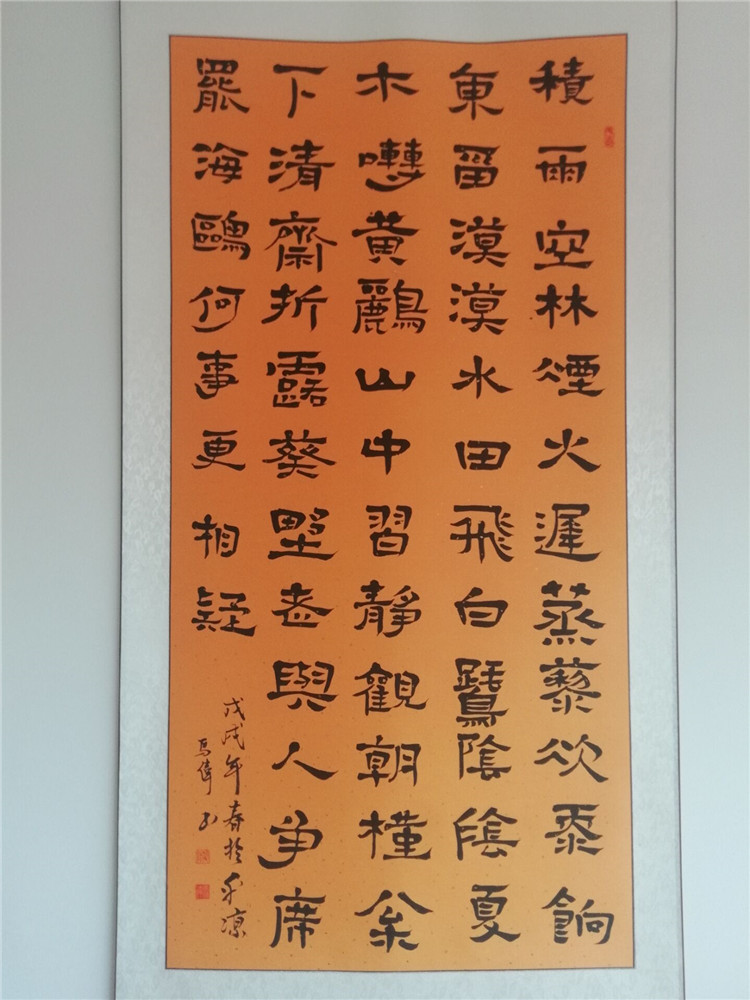 積雨空林煙火遲蒸藜炊黍餉
東菑漠漠水田飛白鷺陰陰夏
木囀黃鸝山中習靜觀朝槿枀
下清齋折露葵野老與人爭席
罷海鷗何事更相疑
戊戌年春於平凉
馬偉书